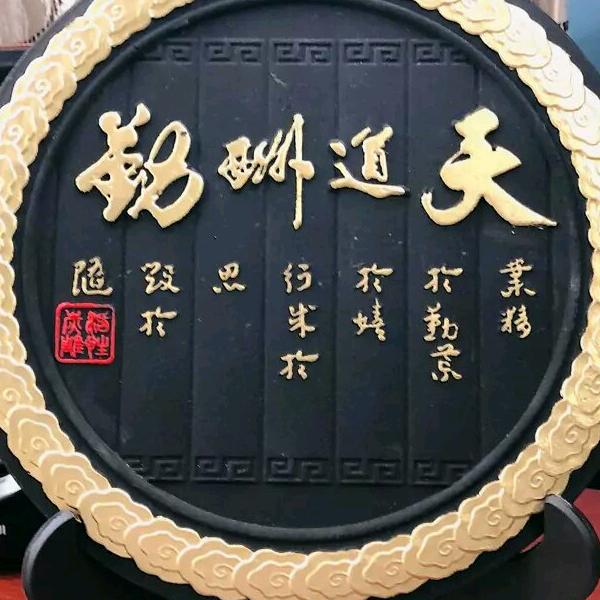 天道酬勤
業精
於勤荒
於嬉
行成於
思
毀於
隨
活性
炭雕